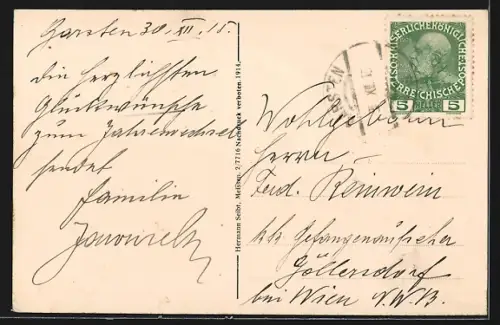 Garsten 30. XII. 15.
die herzlichsten
Glückwünsche
zum Jahreswechsel
sendet
Familie
Hermann Seibt, Meißen. 2/7716 Nachdruck verboten. 1914
KAISERLICHE KÖNIGLICHE
ÖSTERREICHISCHE POST
5 HELLER 5
Wohlgeboren
Herrn
Ferd. Reinwein
k.k. Gefangenaufseher
Göllersdorf
bei Wien N.W.B.